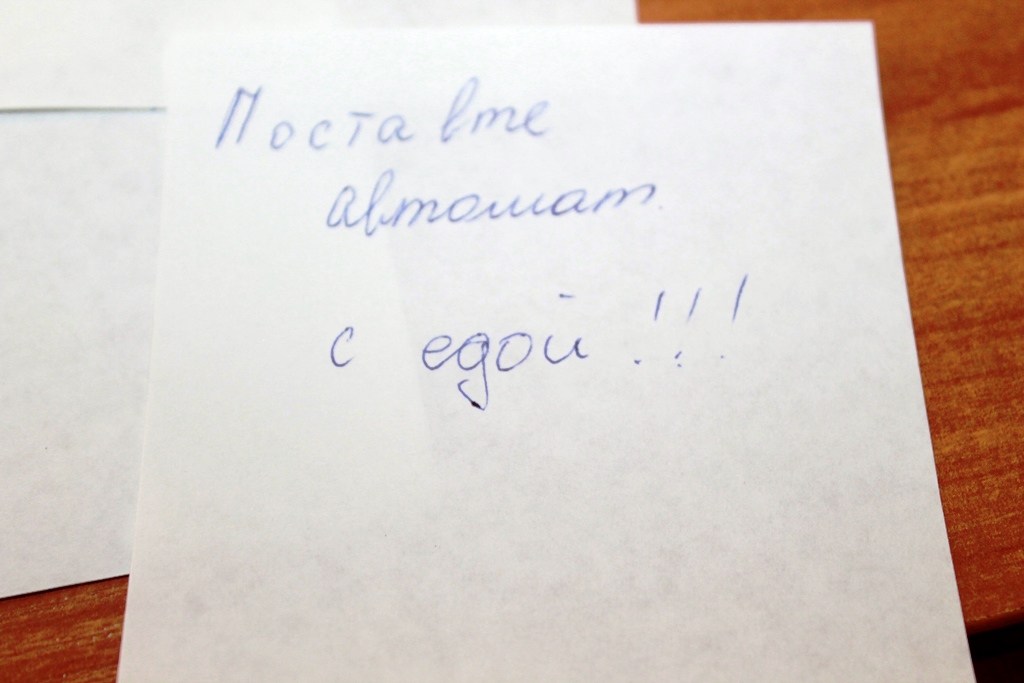 Поставте
автомат
с едой!!!